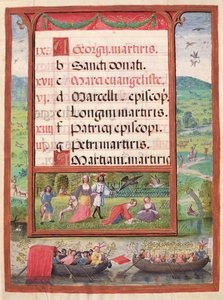 ix. A Georgij. martiris.
b Sancti donati.
xvii c Marci euangeliste.
vi d Marcelli episcop.
e Longini martiris.
xiiii f Patricij episcop.
iii g Petri martiris.
A Marciani. martiris